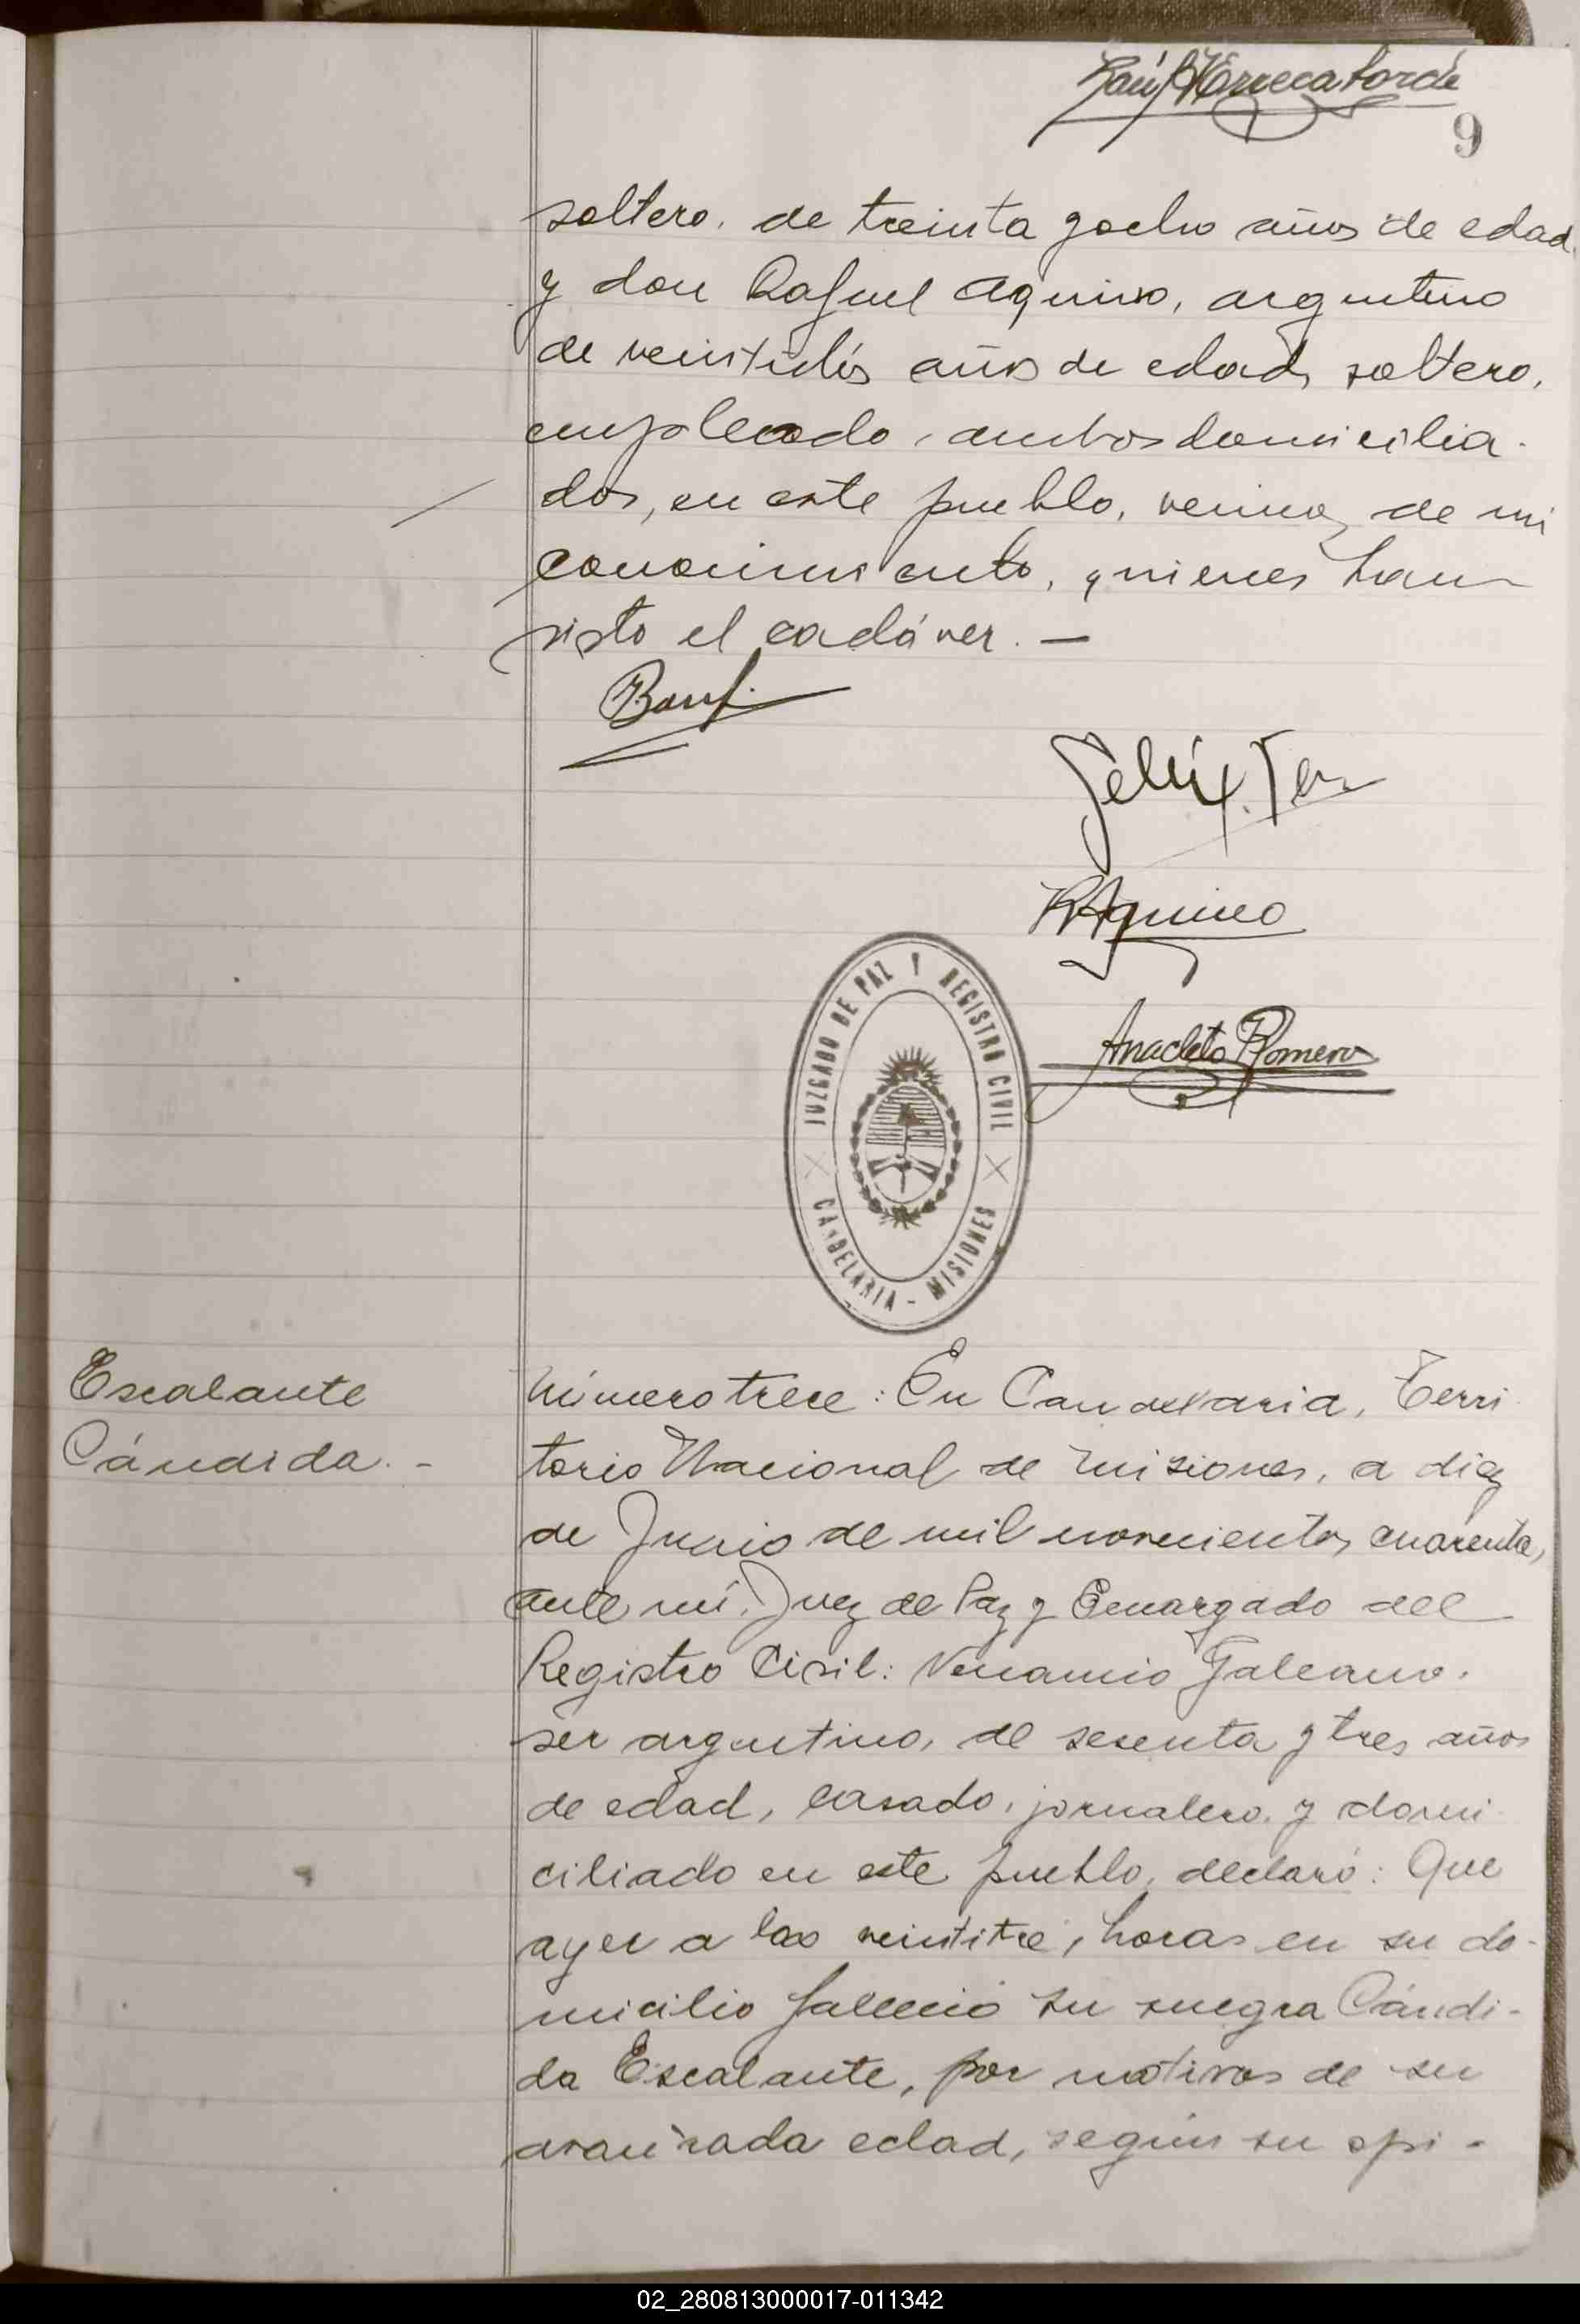 9
soltero, de treinta y ocho años de edad
y don Rafael Aquino, argentino
de veintidós años de edad, soltero,
empleado, ambos domicilia-
dos, en este pueblo, vecinos de mi
conocimiento, quienes han
visto el cadáver. —
Félix
R Aquino
Anacleto Romero
JUZGADO DE PAZ Y REGISTRO CIVIL
CANDELARIA - MISIONES
Escalante
Cándida. -
Número trece: En Candelaria, Terri
torio Nacional de Misiones, a diez
de Junio de mil novecientos cuarenta,
ante mí, Juez de Paz y Encargado del
Registro Civil: Venancio Galeano.
ser argentino, de sesenta y tres años
de edad, casado, jornalero, y domi
ciliado en este pueblo, declaró: Que
ayer a las veintitré, horas en su do-
micilio falleció su suegra Cándi-
da Escalante, por motivos de su
avanzada edad, según su opi-
02_280813000017-011342